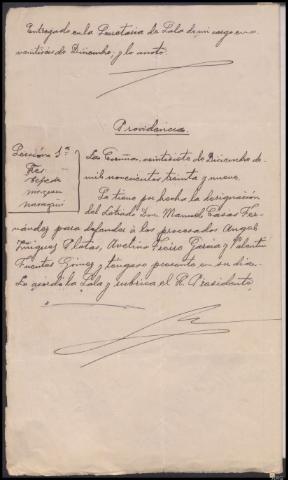 Entregado en la Secretaria de Sala de mi cargo en
veintiseis de Diciembre; y lo anoto.
Providencia
Sección 1ª
La Coruña, veintisiete de Diciembre de
mil novecientos treinta y nueve.
Se tiene por hecha la designación
del Letrado Don Manuel Casas Fer-
nández para defender á los procesados Angel
Iñiguez Platas, Avelino Seijo Garcia y Valentin
Fuentes Gómez y téngase presente en su dia.
Lo acordó la Sala y rubrica el Sr. Presidente